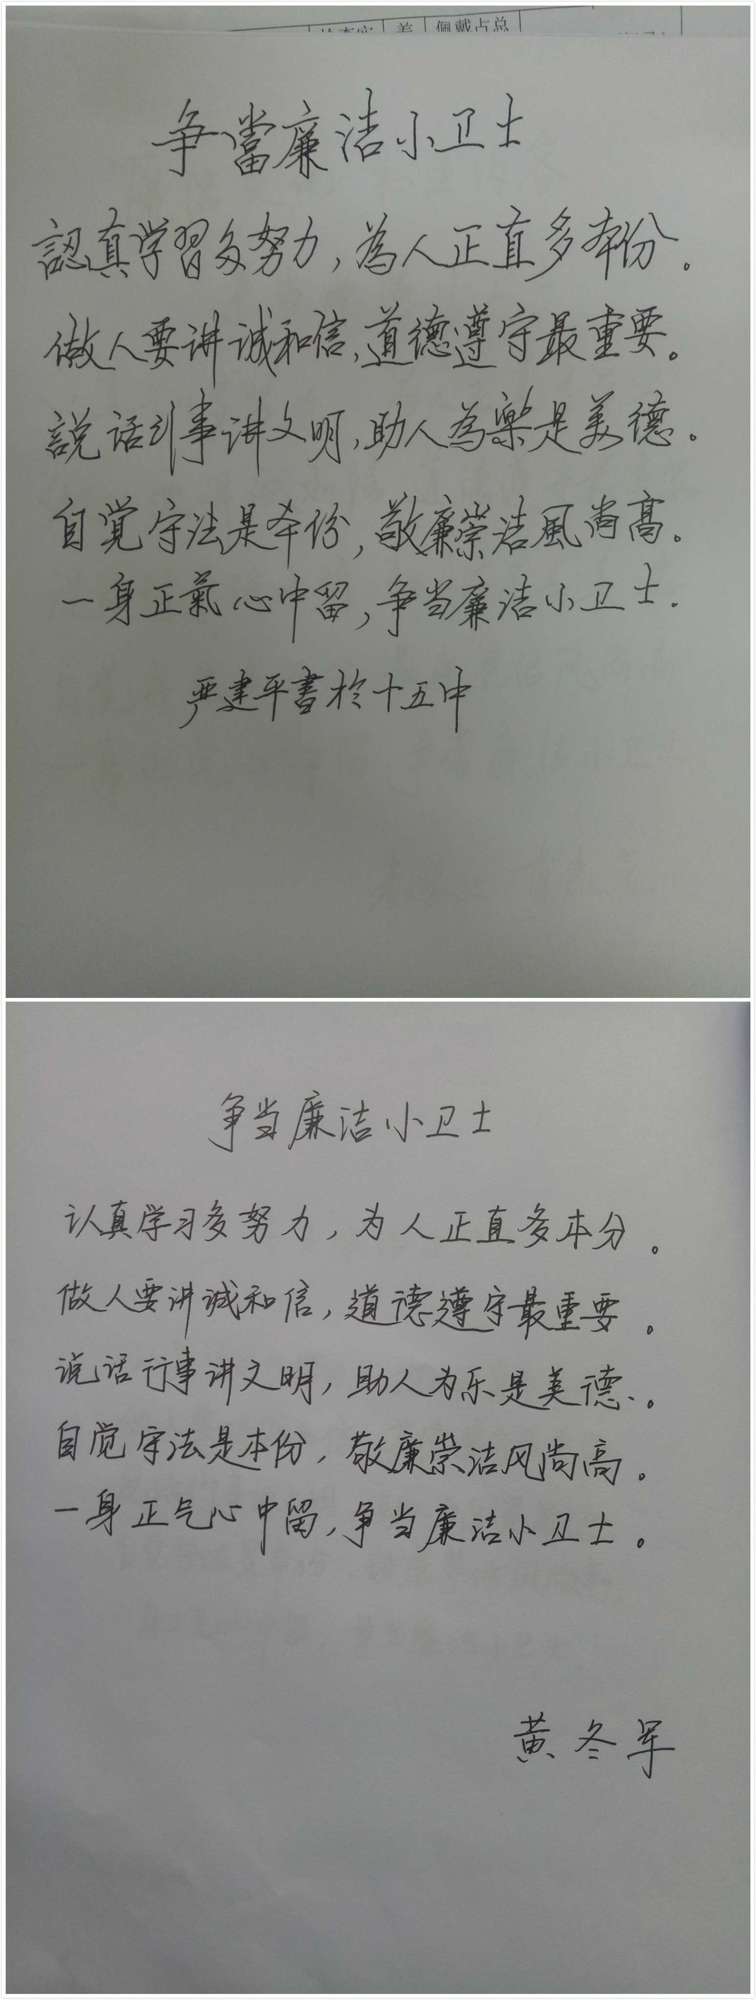 佩戴占总
争當廉洁小卫士
認真学習多努力，為人正直多本份。
做人要讲诚和信，道德遵守最重要。
說话行事讲文明，助人為樂是美德。
自覚守法是本份，敬廉崇洁風尚高。
一身正氣心中留，争当廉洁小卫士.
严建平書於十五中
争当廉洁小卫士
认真学习多努力，为人正直多本分。
做人要讲诚和信，道德遵守最重要。
说话行事讲文明，助人为乐是美德.。
自觉守法是本份，敬廉崇洁风尚高。
一身正气心中留，争当廉洁小卫士。
黄冬军